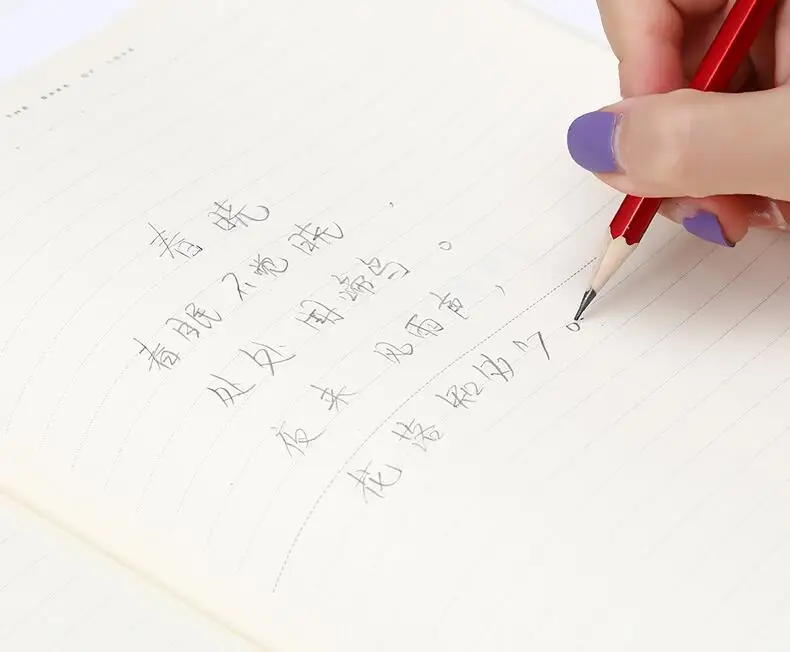 THE BOOK OF LOVE
春晓
春眠不觉晓,
处处闻啼鸟。
夜来风雨声,
花落知多少。